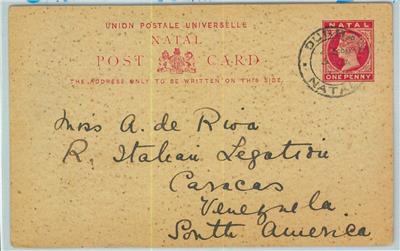 UNION POSTALE UNIVERSELLE
NATAL
POST CARD
THE ADDRESS ONLY TO BE WRITTEN ON THIS SIDE.
NATAL
ONE PENNY
NATAL
Miss A. de Riva
R. Italian Legation
Caracas
Venezuela
South America